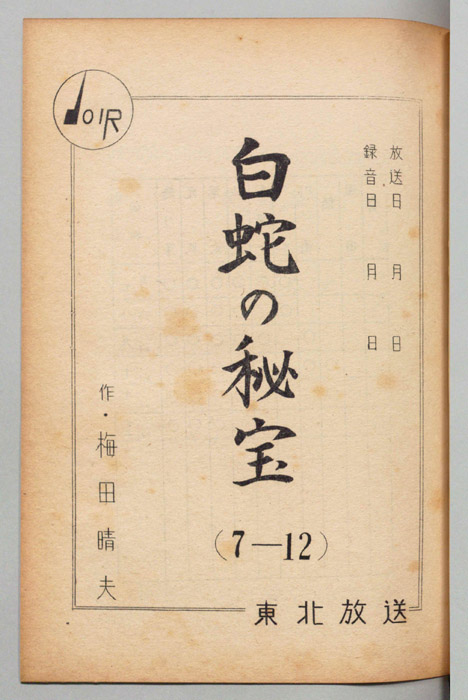 JOIR
放送日 月 日
録音日 月 日
白蛇の秘宝
(7—12)
作・梅田晴夫
東北放送